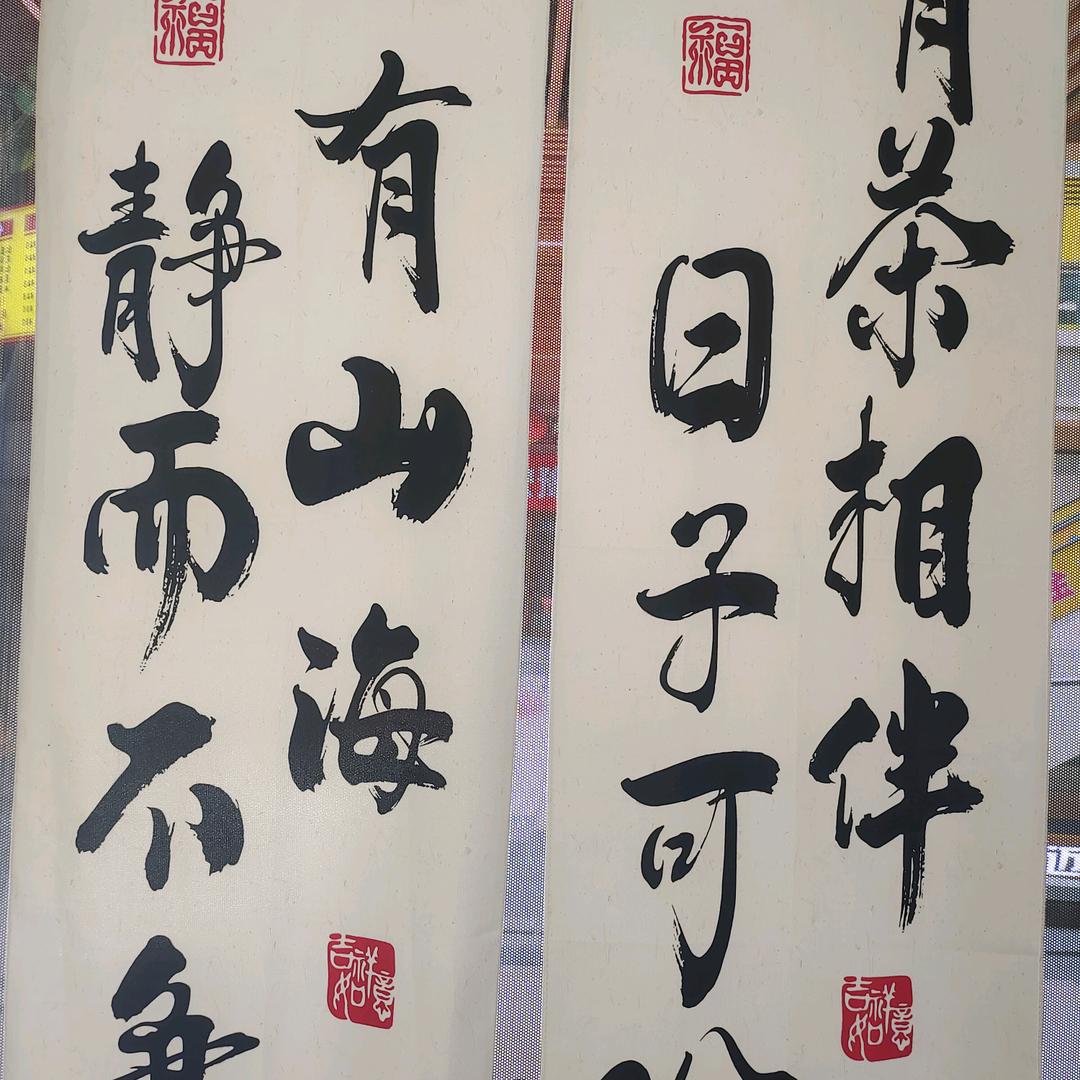 有茶相伴
日子可
福
吉祥如意
有山海
静而不争
福
吉祥如意